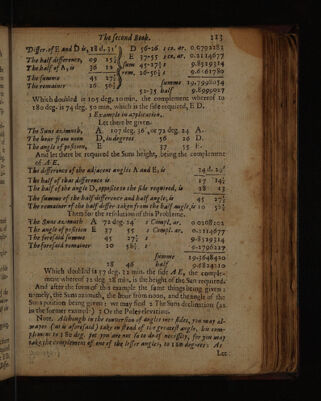 The second Book. 223
Differ. of E and D is, 18 d. 31' D 56-20 s co. ar. 0.0792283
The half difference, 09 15½ E 37-55 s co. ar. 0.2114677
The half of A, is 36 12 summ 45-27½ s 9.8529314
The summe 45 27½ rem. 26-56½ s 9.6561780
The remainer 26 56½ summe 19.7998054
52-35 half 9.8999027
Which doubled is 105 deg. 10 min. the complement whereof to
180 deg. is 74 deg. 50 min. which is the side required, E D.
1 Example in application.
Let there be given.
The Suns azimuth, A 107 deg. 36, or 72 deg. 24 A.
The hour from noon D, in degrees 56 20 D.
The angle of position, E 37 55 E.
And let there be required the Suns height, being the complement
of A E.
The difference of the adjacent angles A and E, is 34 d. 29'
The half of that difference is 17 14½
The half of the angle D, opposite to the side required, is 28 13
The summe of the half difference and half angle, is 45 27½
The remainer of the half differ. taken from the half angle, is 10 58½
Then for the resolution of this Probleme.
The Suns azimuth A 72 deg. 24' s Compl. ar. 0.0208202
The angle of position E 37 55 s Compl. ar. 0.2114677
The foresaid summe 45 27½ s 9.8529314
The foresaid remainer 10 58½ s
summe 19.3648420
28 46 half 9.6824210
Which doubled is 57 deg. 32 min. the side A E, the comple-
ment whereof 32 deg. 28 min. is the height of the Sun required.
And after the form of this example the same things being given;
namely, the Suns azimuth, the hour from noon, and the angle of the
Suns position being given; we may find 2 The Suns declination (as
in the former example) 3 Or the Poles elevation.
Note. Although in the conversion of angles into sides, you may al-
wayes (as is aforesaid) take in stead of the greatest angle, his com-
plement to 180 deg. yet you are not so to do of necessity, for you may
take the complement of one of the lesser angles, to 180 degrees: As
Let